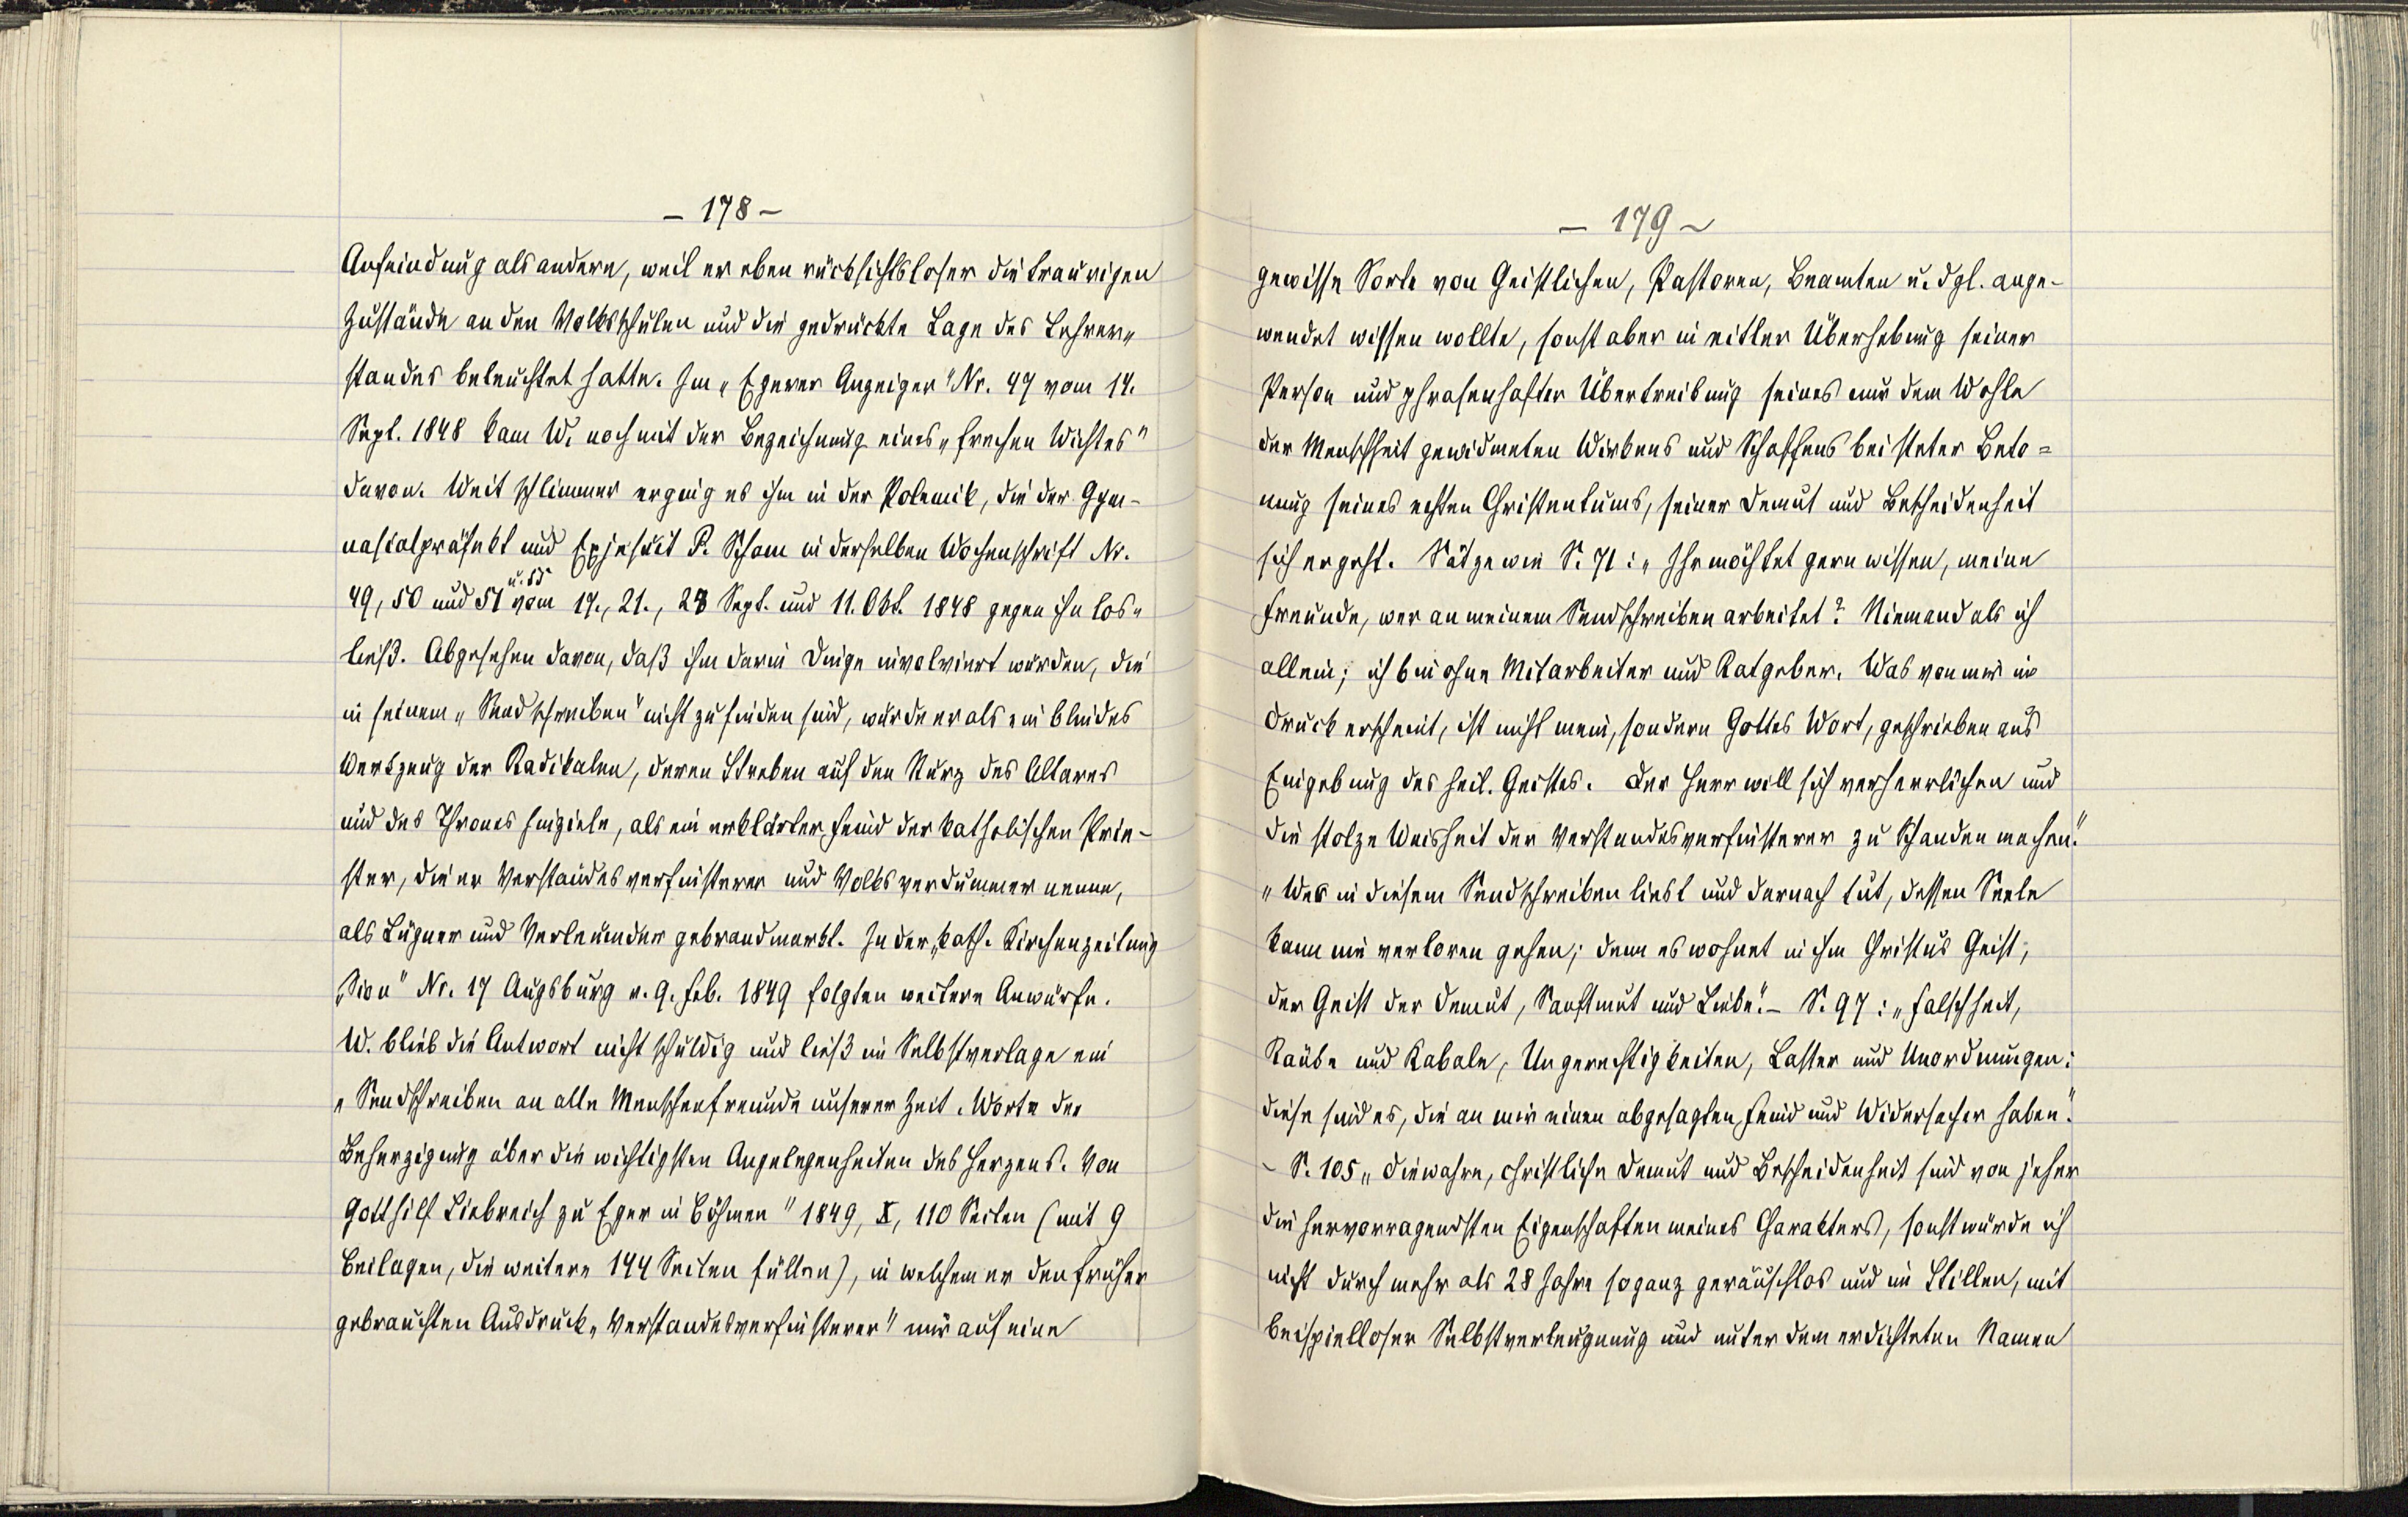 – 178 –
Anfeindung als andere, weil er eben rücksichtsloser die traurigen
Zustände an den Volksschulen und die gedrückte Lage des Lehrer„
standes beleuchtet hatte. Im „Egerer Anzeiger" Nr. 47 vom 14.
Sept. 1848 kam W. noch mit der Bezeichnung eines „frechen Wichtes"
davon. Weit schlimmer erging es ihm in der Polemik, die der Gym-
nasialpräfekt und Exjesuit P. Schom in derselben Wochenschrift Nr.
49, 50 und 51 u. 55 vom 14., 21., 28 Sept. und 11. Okt. 1848 gegen ihn los„
ließ. Abgesehen davon, daß ihm darin Dinge involviert wurden, die
in seinem „Sendschreiben" nicht zu finden sind, wurde er als ein blindes
Werkzeug der Radikalen, deren Streben auf den Sturz des Altares
und des Thrones hinziele, als ein erklärter Feind der katholischen Prie-
ster, die er Verstandesverfinsterer und Volksverdummer nenne,
als Lügner und Verleumder gebrandmarkt. In der „kath. Kirchenzeitung
„Sion" Nr. 17 Augsburg v. 9. Feb. 1849 folgten weitere Anwürfe.
W. blieb die Antwort nicht schuldig und ließ im Selbstverlage ein
„Sendschreiben an alle Menschenfreunde unserer Zeit. Worte der
Beherzigung über die wichtigsten Angelegenheiten des Herzens. Von
Gotthilf Liebreich zu Eger in Böhmen" 1849, X, 110 Seiten (mit 9
Beilagen, die weitere 144 Seiten füllen), in welchem er den früher
gebrauchten Ausdruck „Verstandesverfinsterer" nur auf eine
– 179 –
gewisse Sorte von Geistlichen, Pastoren, Beamten u. dgl. ange-
wendet wissen wollte, sonst aber in eitler Überhebung seiner
Person und phrasenhafter Übertreibung seines nur dem Wohle
der Menschheit gewidmeten Wirkens und Schaffens bei steter Beto=
nung seines echten Christentums, seiner Demut und Bescheidenheit
sich ergeht. Sätze wie S. 71: „Ihr möchtet gern wissen, meine
Freunde, wer an meinem Sendschreiben arbeitet? Niemand als ich
allein; ich bin ohne Mitarbeiter und Ratgeber. Was von mir im
Druck erscheint, ist nicht mein, sondern Gottes Wort, geschrieben aus
Eingebung des heil. Geistes. Der Herr will sich verherrlichen und
die stolze Weisheit der Verstandesverfinsterer zu Schanden machen."
„Wer in diesem Sendschreiben liest und darnach tut, dessen Seele
kann nie verloren gehen; denn es wohnet in ihm Christus Geist,
der Geist der Demut, Sanftmut und Liebe." – S. 97: „Falschheit,
Räube und Kabale, Ungerechtigkeiten, Laster und Unordnungen:
diese sind es, die an mir einen abgesagten Feind und Widersacher haben."
– S. 105 „Die wahre, christliche Demut und Bescheidenheit sind von jeher
die hervorragendsten Eigenschaften meines Charakters, sonst würde ich
nicht durch mehr als 28 Jahre so ganz geräuschlos und im Stillen, mit
beispielloser Selbstverleugnung und unter dem erdichteten Namen